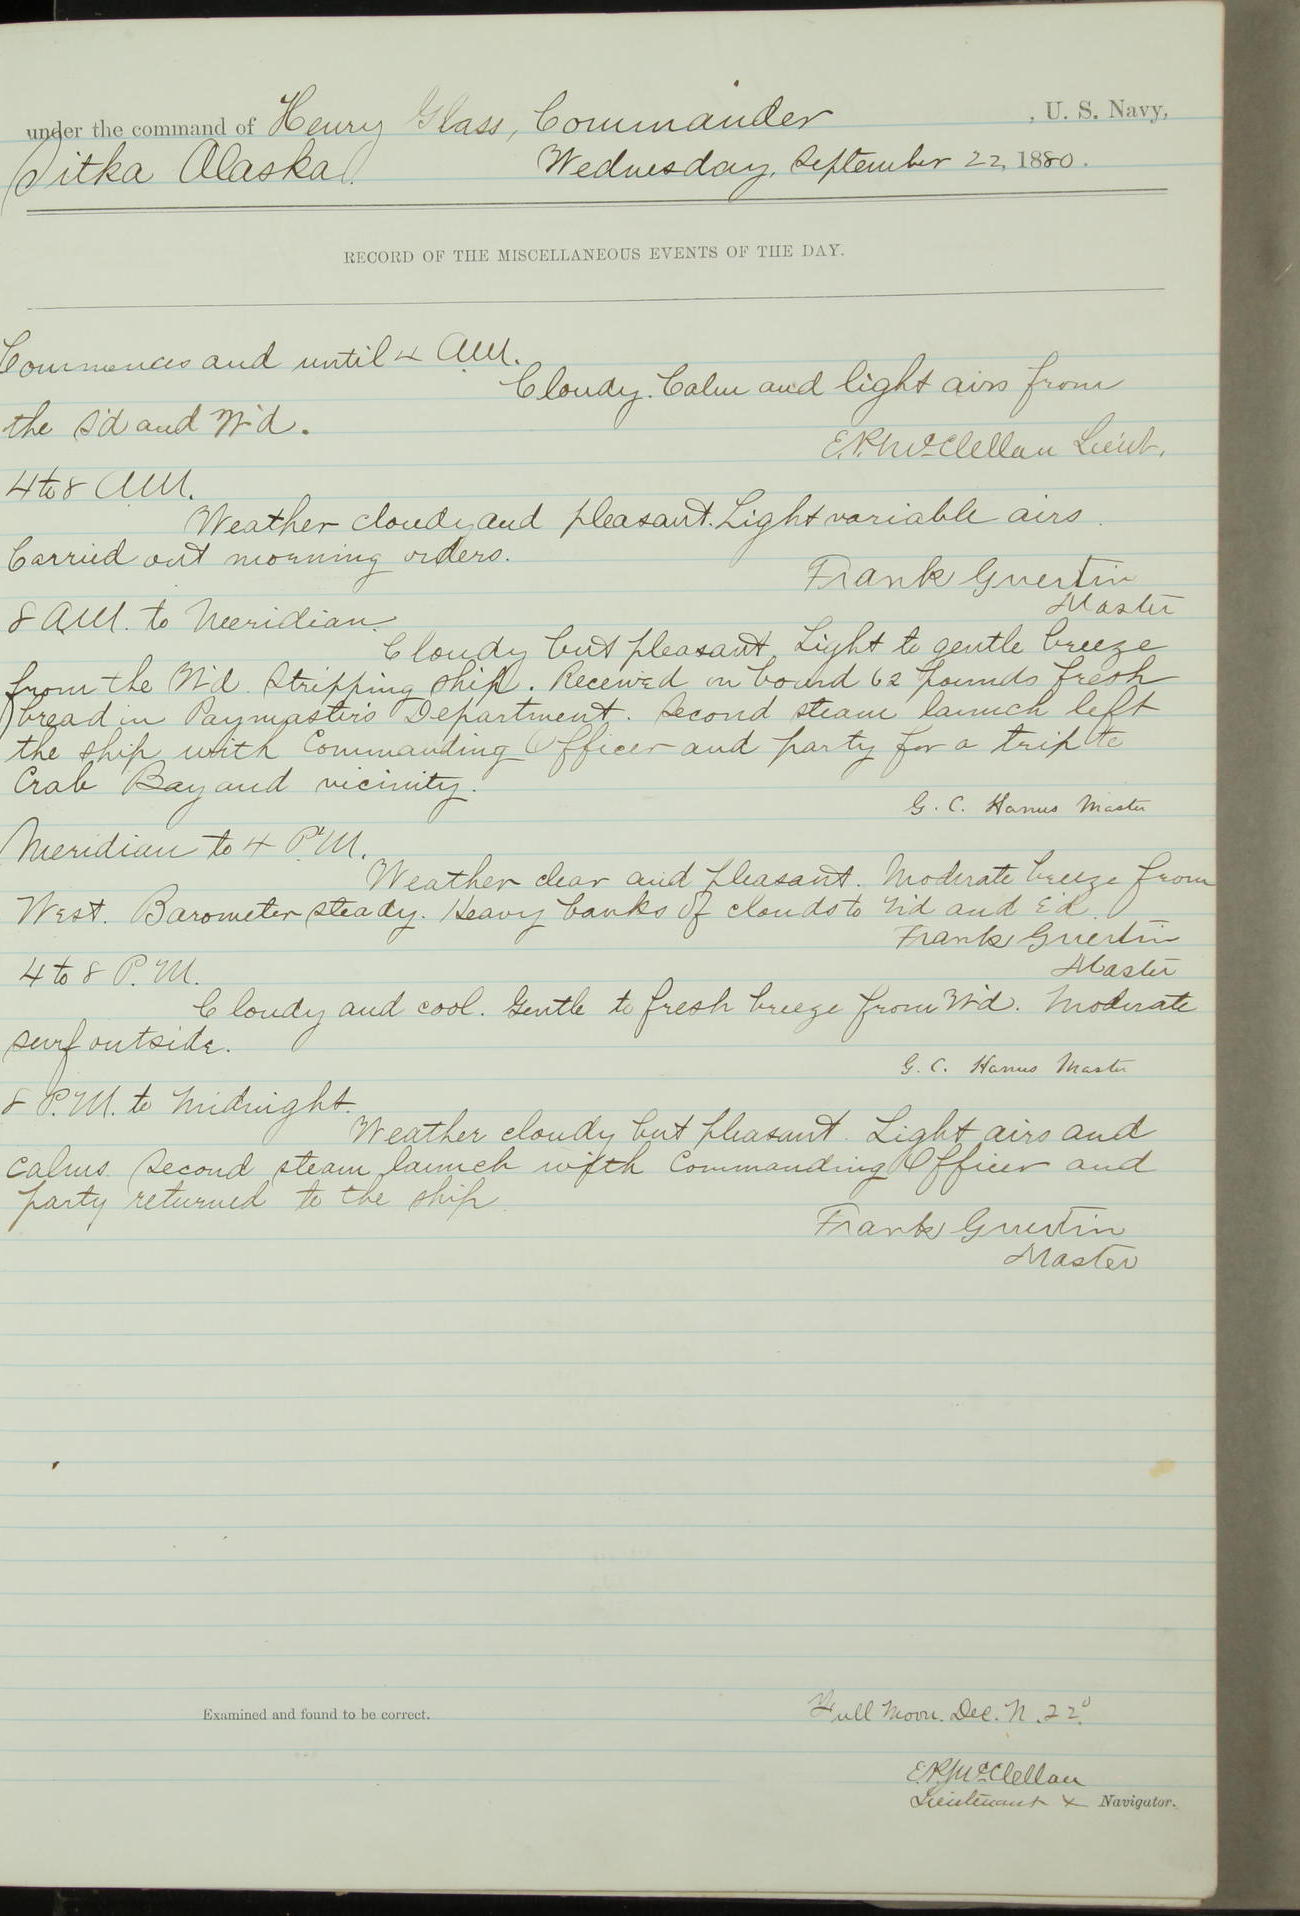 under the command of Henry Glass, Commander , U. S. Navy,
Sitka Alaska. Wednesday, September 22, 1880.
RECORD OF THE MISCELLANEOUS EVENTS OF THE DAY.
Commences and until 4 A.M.
Cloudy. Calm and light airs from
the S'd and W'd.
E.K. McClellan Lieut.
4 to 8 A.M.
Weather cloudy and pleasant. Light variable airs.
Carried out morning orders.
Frank Guertin
Master
8 A.M. to Meridian.
Cloudy but pleasant. Light to gentle breeze
from the W'd. Stripping ship. Received on board 62 pounds fresh
bread in Paymaster's Department. Second steam launch left
the ship with Commanding Officer and party for a trip to
Crab Bay and vicinity.
G. C. Hanus Master
Meridian to 4 P.M.
Weather clear and pleasant. Moderate breeze from
West. Barometer steady. Heavy banks of clouds to N'd and E'd.
Frank Guertin
Master
4 to 8 P.M.
Cloudy and cool. Gentle to fresh breeze from W'd. Moderate
surf outside.
G. C. Hanus Master
8 P.M. to Midnight.
Weather cloudy but pleasant. Light airs and
calms. Second steam launch with Commanding Officer and
party returned to the ship.
Frank Guertin
Master
Examined and found to be correct.
Full Moon. Dec. N. 22°
E.K. McClellan
Lieutenant & Navigator.